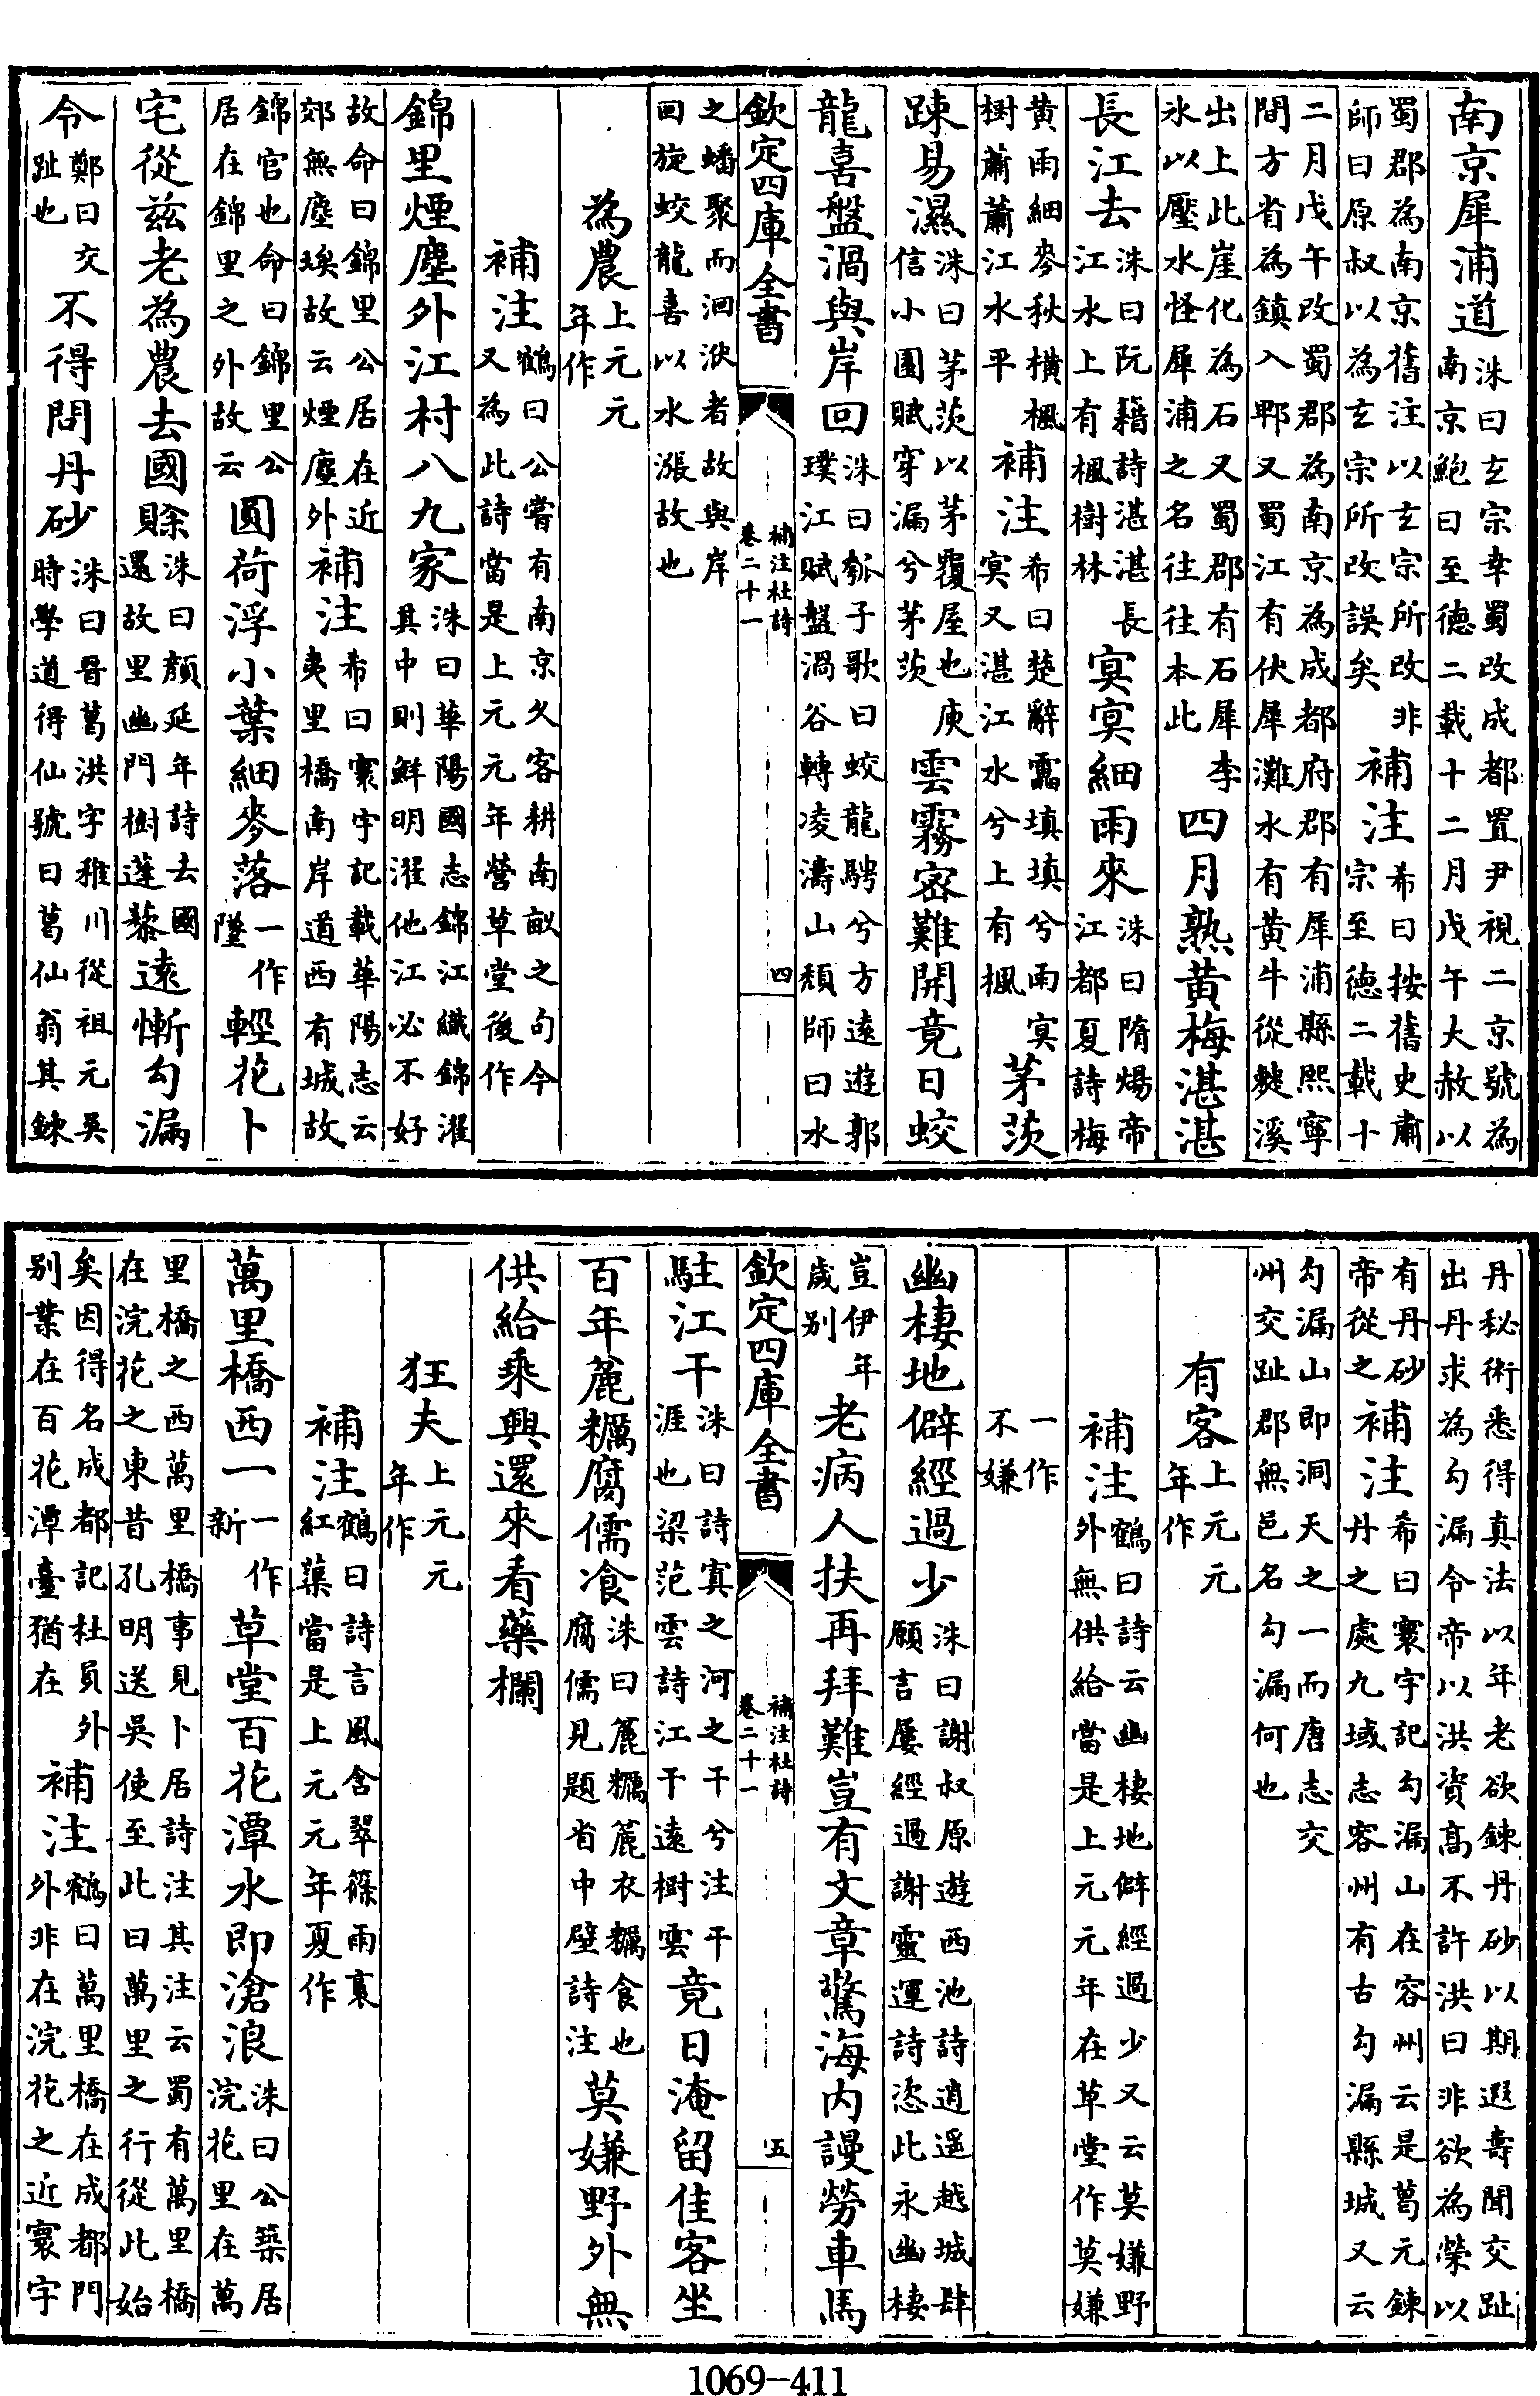 南京犀浦道洙曰玄宗幸蜀改成都置尹視二京號為南京鮑曰至德二載十二月戊午大赦以
蜀郡為南京舊注以玄宗所改非師曰原叔以為玄宗所改誤矣補注希曰按舊史肅宗至德二載十
二月戊午改蜀郡為南京為成都府郡有犀浦縣熙寧間方省為鎮入郫又蜀江有伏犀灘水有黄牛從溪
出上此崖化為石又蜀郡有石犀李氷以壓水怪犀浦之名往往本此四月熟黄梅湛湛
長江去洙曰阮籍詩湛湛長江水上有楓樹林冥冥細雨來洙曰隋煬帝江都夏詩梅
黄雨細麥秋横楓樹蕭蕭江水平補注希曰楚辭靁填填兮雨冥冥又湛江水兮上有楓茅茨
踈易濕洙曰茅茨以茅覆屋也庾信小園賦穿漏兮茅茨雲霧宻難開竟日蛟
龍喜盤渦與岸回洙曰瓠子歌曰蛟龍騁兮方遠遊郭璞江賦盤渦谷轉凌濤山頽師曰水
欽定四庫全書 補注杜詩 卷二十一 四
之蟠聚而洄洑者故與岸回旋蛟龍喜以水漲故也
為農上元元年作
補注鶴曰公嘗有南京久客耕南畝之句今又為此詩當是上元元年營草堂後作
錦里煙塵外江村八九家洙曰華陽國志錦江織錦濯其中則鮮明濯他江必不好
故命曰錦里公居在近郊無塵埃故云煙塵外補注希曰寰宇記載華陽志云夷里橋南岸道西有城故
錦官也命曰錦里公居在錦里之外故云圓荷浮小葉細麥落一作墜輕花卜
宅從兹老為農去國賖洙曰顔延年詩去國還故里幽門樹蓬藜遠慚勾漏
令鄭曰交趾也不得問丹砂洙曰晉葛洪字稚川從祖元吳時學道得仙號曰葛仙翁其鍊
丹秘術悉得真法以年老欲鍊丹砂以期遐壽聞交趾出丹求為勾漏令帝以洪資髙不許洪曰非欲為榮以
有丹砂帝從之補注希曰寰宇記勾漏山在容州云是葛元鍊丹之處九域志容州有古勾漏縣城又云
勾漏山即洞天之一而唐志交州交趾郡無邑名勾漏何也
有客上元元年作
補注鶴曰詩云幽棲地僻經過少又云莫嫌野外無供給當是上元元年在草堂作莫嫌
一作不嫌
幽棲地僻經過少洙曰謝叔原遊西池詩逍遥越城肆願言屢經過謝靈運詩恣此永幽棲
豈伊年歲别老病人扶再拜難豈有文章驚海内謾勞車馬
欽定四庫全書 補注杜詩 卷二十一 五
駐江干洙曰詩寘之河之干兮注干涯也梁范雲詩江干遠樹雲竟日淹留佳客坐
百年麄糲腐儒飡洙曰麄糲麄衣糲食也腐儒見題省中壁詩注莫嫌野外無
供給乘興還來看藥欄
狂夫上元元年作
補注鶴曰詩言風含翠篠雨裛紅蕖當是上元元年夏作
萬里橋西一一作新草堂百花潭水即滄浪洙曰公築居浣花里在萬
里橋之西萬里橋事見卜居詩注其注云蜀有萬里橋在浣花之東昔孔明送吳使至此曰萬里之行從此始
矣因得名成都記杜員外别業在百花潭臺猶在補注鶴曰萬里橋在成都門外非在浣花之近寰宇
1069-411